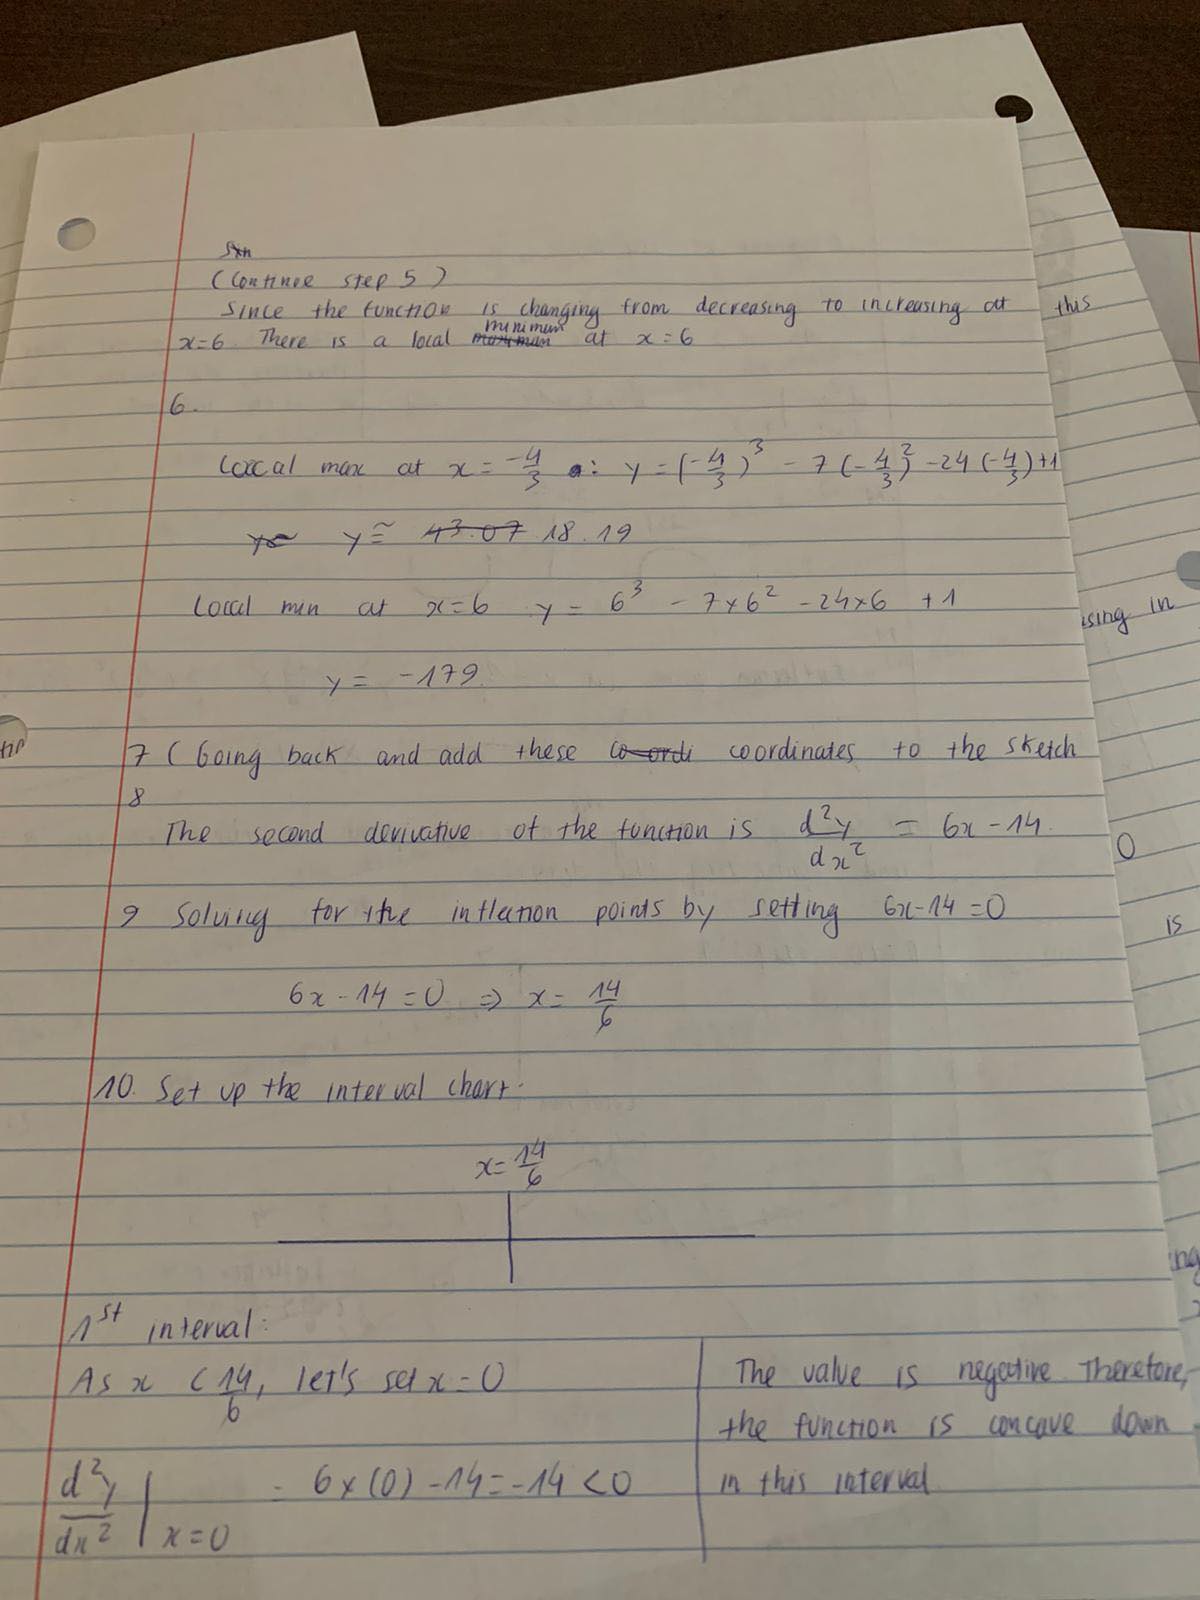 (Continue step 5)
Since the function is changing from decreasing to increasing at this
x=6. There is a local minimum at x=6
6.
Loccal max at x = -4/3 : y = (-4/3)^3 - 7(-4/3)^2 - 24(-4/3)+1
y ≅ 43.07 18.19
Local min at x=6 y = 6^3 - 7x6^2 - 24x6 +1
y = -179
7 (Going back and add these co-ordi coordinates to the sketch
8
The second derivative of the function is d^2y/dx^2 = 6x-14.
9 Solving for the inflection points by setting 6x-14=0
6x-14=0 => x= 14/6
10. Set up the interval chart.
x=14/6
1st interval:
As x < 14/6, let's set x=0
d^2y/dx^2 | x=0 = 6x(0)-14=-14<0
The value is negative. Therefore,
the function is concave down
in this interval.
using in
0
is
ng